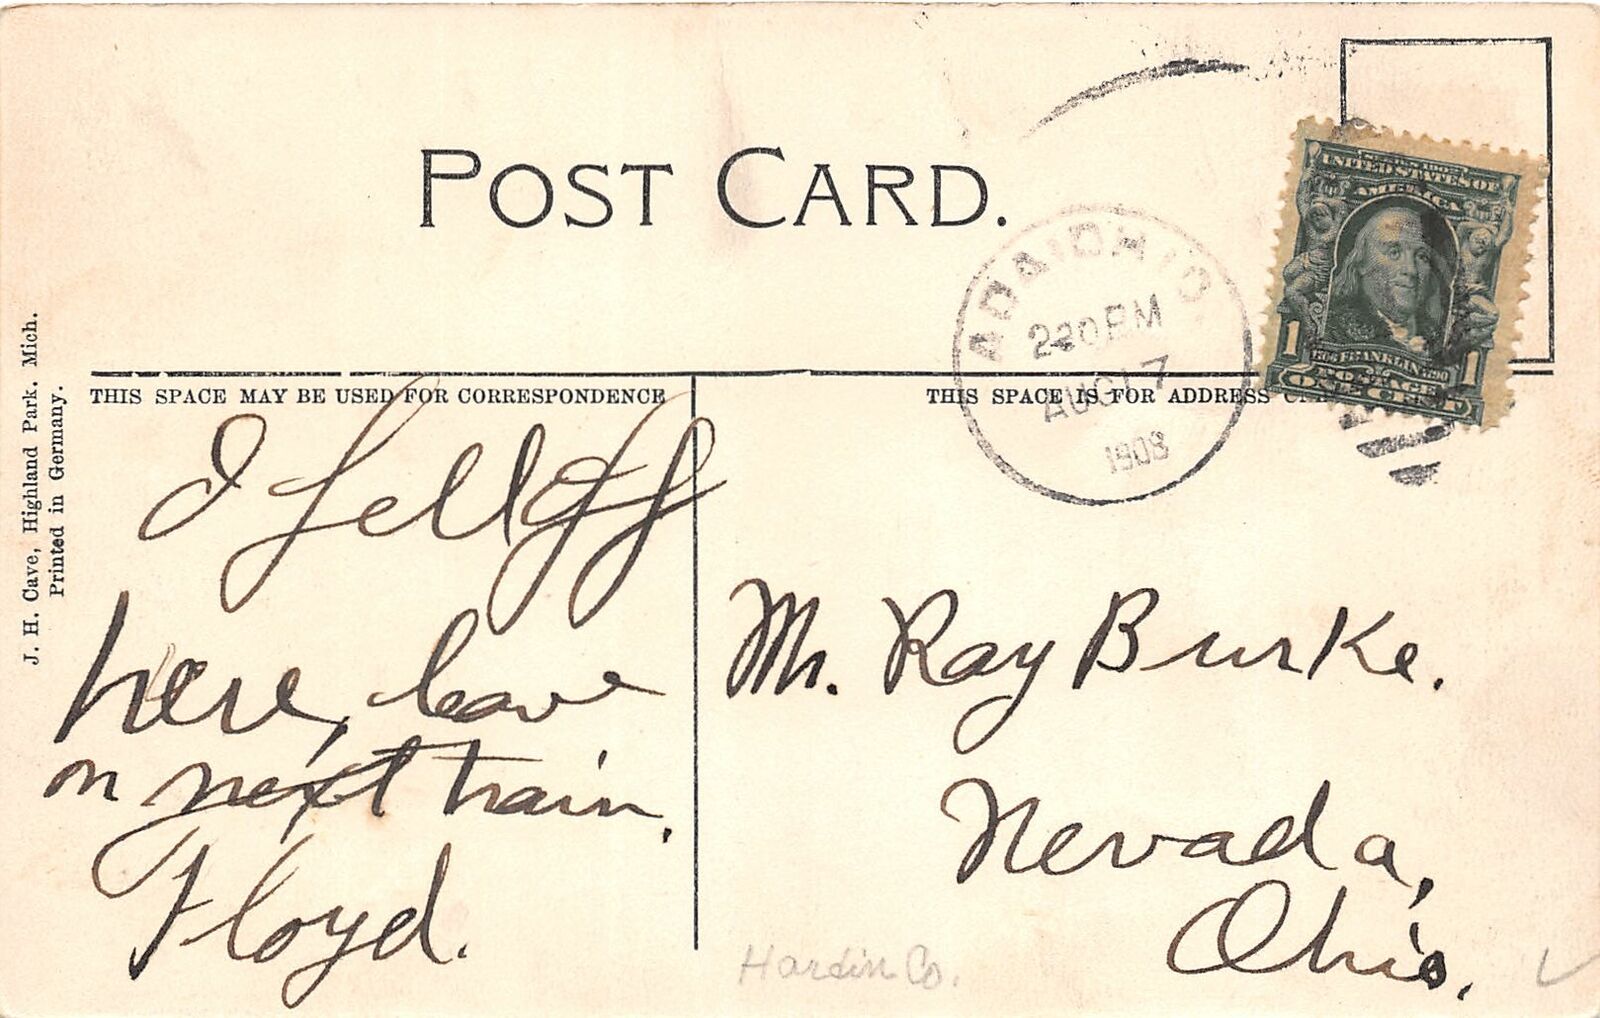 POST CARD.
ADA, OHIO
2 30 PM
AUG 17
1908
UNITED STATES OF
AMERICA
1
1
POSTAGE
ONE CENT
THIS SPACE MAY BE USED FOR CORRESPONDENCE
THIS SPACE IS FOR ADDRESS
I fell off
here, leave
on next train.
Floyd.
Mr. Ray Burke.
Nevada,
Ohio.
Hardin Co.
J. H. Cave, Highland Park. Mich.
Printed in Germany.